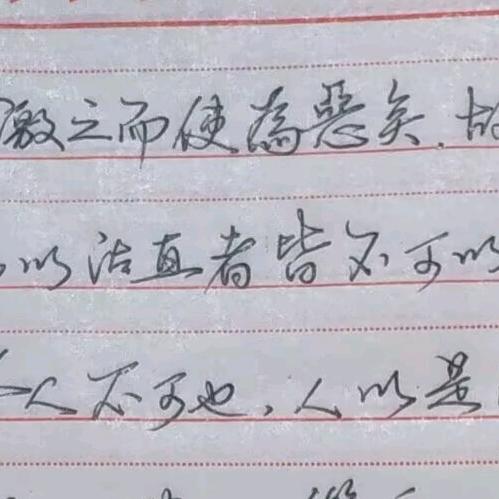 激之而使為惡矣.故
以沽直者皆不可以
人不可也,人以是